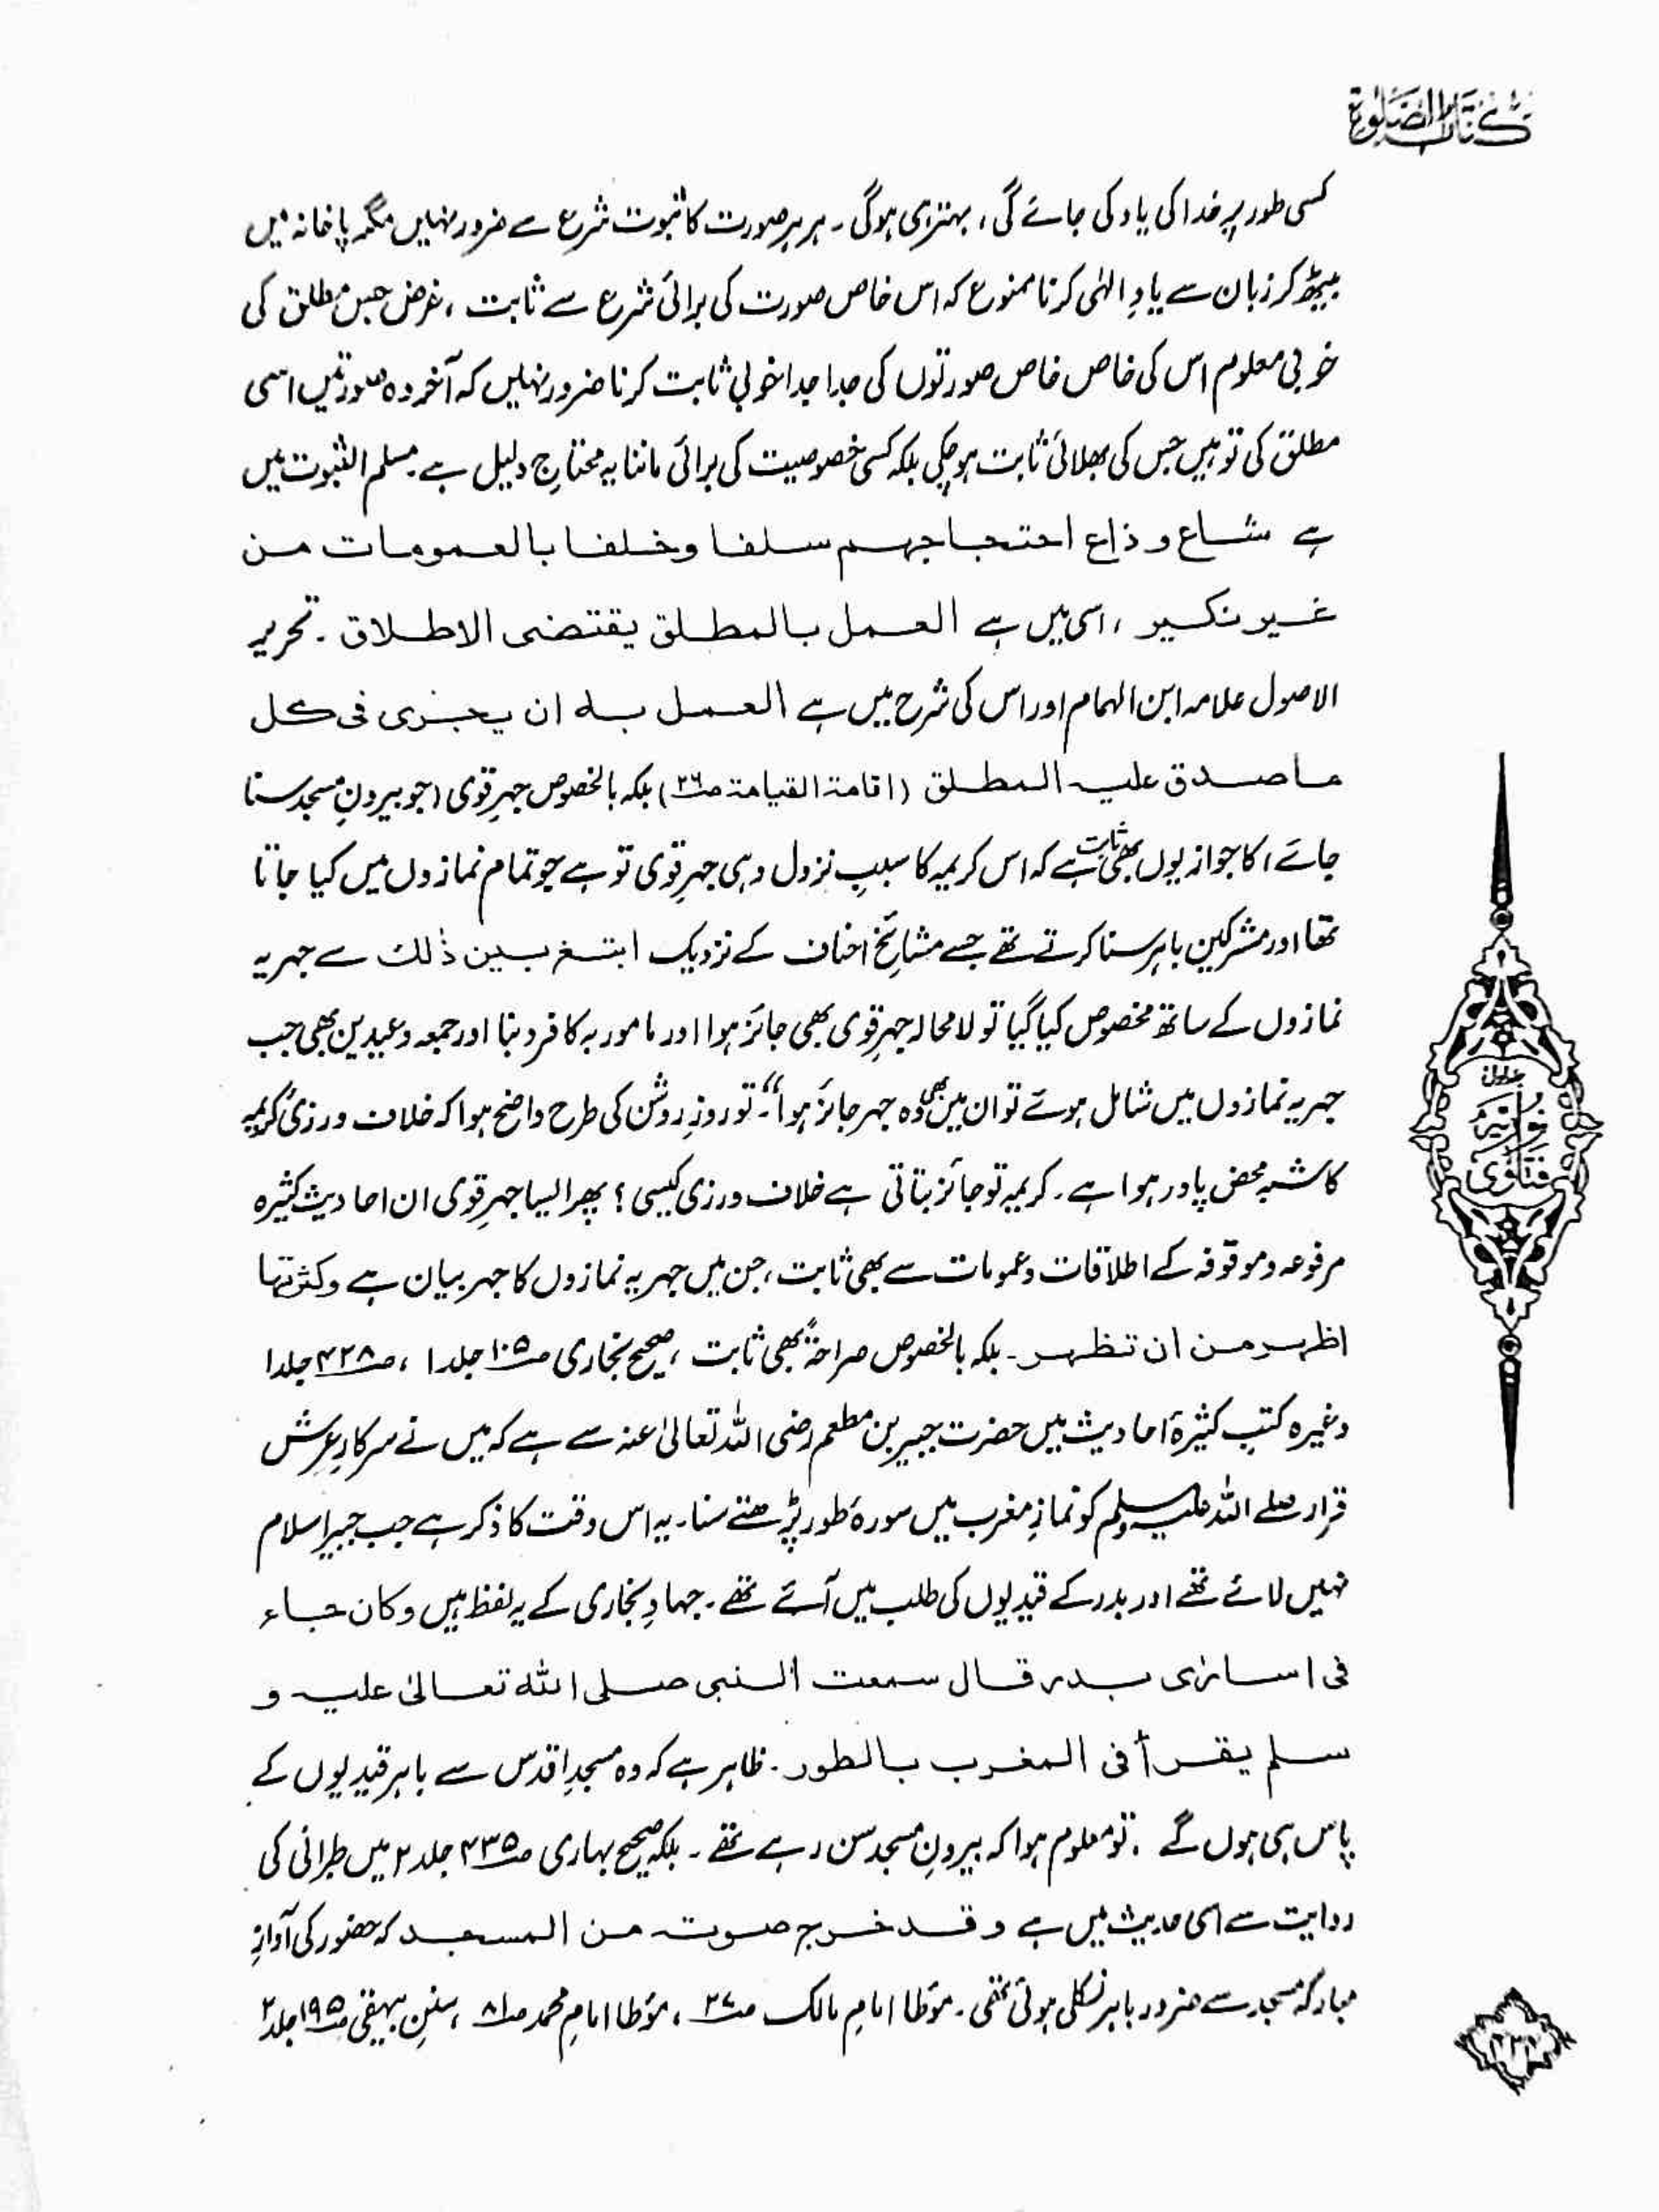 کتاب الصلوٰۃ
کسی طور پر خدا کی یاد کی جائے گی، بہتر ہی ہوگی۔ ہر ہر صورت کا ثبوت شرع سے ضرور نہیں مگر پاخانہ میں
بیٹھ کر زبان سے یادِ الٰہی کرنا ممنوع کہ اس خاص صورت کی برائی شرع سے ثابت، غرض جس مطلق کی
خوبی معلوم اس کی خاص خاص صورتوں کی جدا جدا خوبی ثابت کرنا ضرور نہیں کہ آخر وہ صورتیں اسی
مطلق کی تو ہیں جس کی بھلائی ثابت ہو چکی بلکہ کسی خصوصیت کی برائی ماننا یہ محتاجِ دلیل ہے۔ مسلم الثبوت میں
ہے شاع و ذاع احتجاجہم سلفا وخلفا بالعمومات من
غیر نکیر، اسی میں ہے العمل بالمطلق یقتضی الاطلاق۔ تحریر
الاصول علامہ ابن الہمام اور اس کی شرح میں ہے العمل بہ ان یجزی فی کل
ما صدق علیہ المطلق (اقامۃ القیامۃ ص۲۶) بلکہ بالخصوص جہرِ قوی (جو بیرونِ مسجد سنا
جائے) کا جواز یوں بھی ثابت ہے کہ اس کریمہ کا سببِ نزول وہی جہرِ قوی تو ہے جو تمام نمازوں میں کیا جاتا
تھا اور مشرکین باہر سنا کرتے تھے جسے مشائخِ احناف کے نزدیک ابتغ بین ذٰلک سے جہریہ
نمازوں کے ساتھ مخصوص کیا گیا تو لامحالہ جہرِ قوی بھی جائز ہوا اور مامور بہ کا فرد بنا اور جمعہ و عیدین بھی جب
جہریہ نمازوں میں شامل ہوئے تو ان میں بھی وہ جہر جائز ہوا“۔ تو روزِ روشن کی طرح واضح ہوا کہ خلاف ورزیٔ کریمہ
کا شبہ محض پادر ہوا ہے۔ کریمہ تو جائز بتاتی ہے خلاف ورزی کیسی؟ پھر ایسا جہرِ قوی ان احادیثِ کثیرہ
مرفوعہ و موقوفہ کے اطلاقات و عمومات سے بھی ثابت، جن میں جہریہ نمازوں کا جہر بیان ہے وکثرتہا
اظہر من ان تظہر۔ بلکہ بالخصوص صراحۃً بھی ثابت، صحیح بخاری ص۱۰۵ جلد۱، ص۴۲۸ جلد۱
وغیرہ کتبِ کثیرۂ احادیث میں حضرت جبیر بن مطعم رضی اللہ تعالیٰ عنہ سے ہے کہ میں نے سرکارِ عرش
قرار صلے اللہ علیہ وسلم کو نمازِ مغرب میں سورۂ طور پڑھتے سنا۔ یہ اس وقت کا ذکر ہے جب جبیر اسلام
نہیں لائے تھے اور بدر کے قیدیوں کی طلب میں آئے تھے۔ جہادِ بخاری کے یہ لفظ ہیں وکان جاء
فی اساریٰ بدر قال سمعت النبی صلی اللہ تعالیٰ علیہ و
سلم یقرأ فی المغرب بالطور۔ ظاہر ہے کہ وہ مسجدِ اقدس سے باہر قیدیوں کے
پاس ہی ہوں گے۔ تو معلوم ہوا کہ بیرونِ مسجد سن رہے تھے۔ بلکہ صحیح بہاری ص۴۳۵ جلد۲ میں طبرانی کی
روایت سے اسی حدیث میں ہے وقد خرج صوتہ من المسجد کہ حضور کی آوازِ
مبارکہ مسجد سے ضرور باہر نکلی ہوئی تھی۔ مؤطا امامِ مالک ص۲۷، مؤطا امامِ محمد ص۸۱، سننِ بیہقی ص۱۹۵ جلد۲
جلد اول
فتاویٰ نوریہ